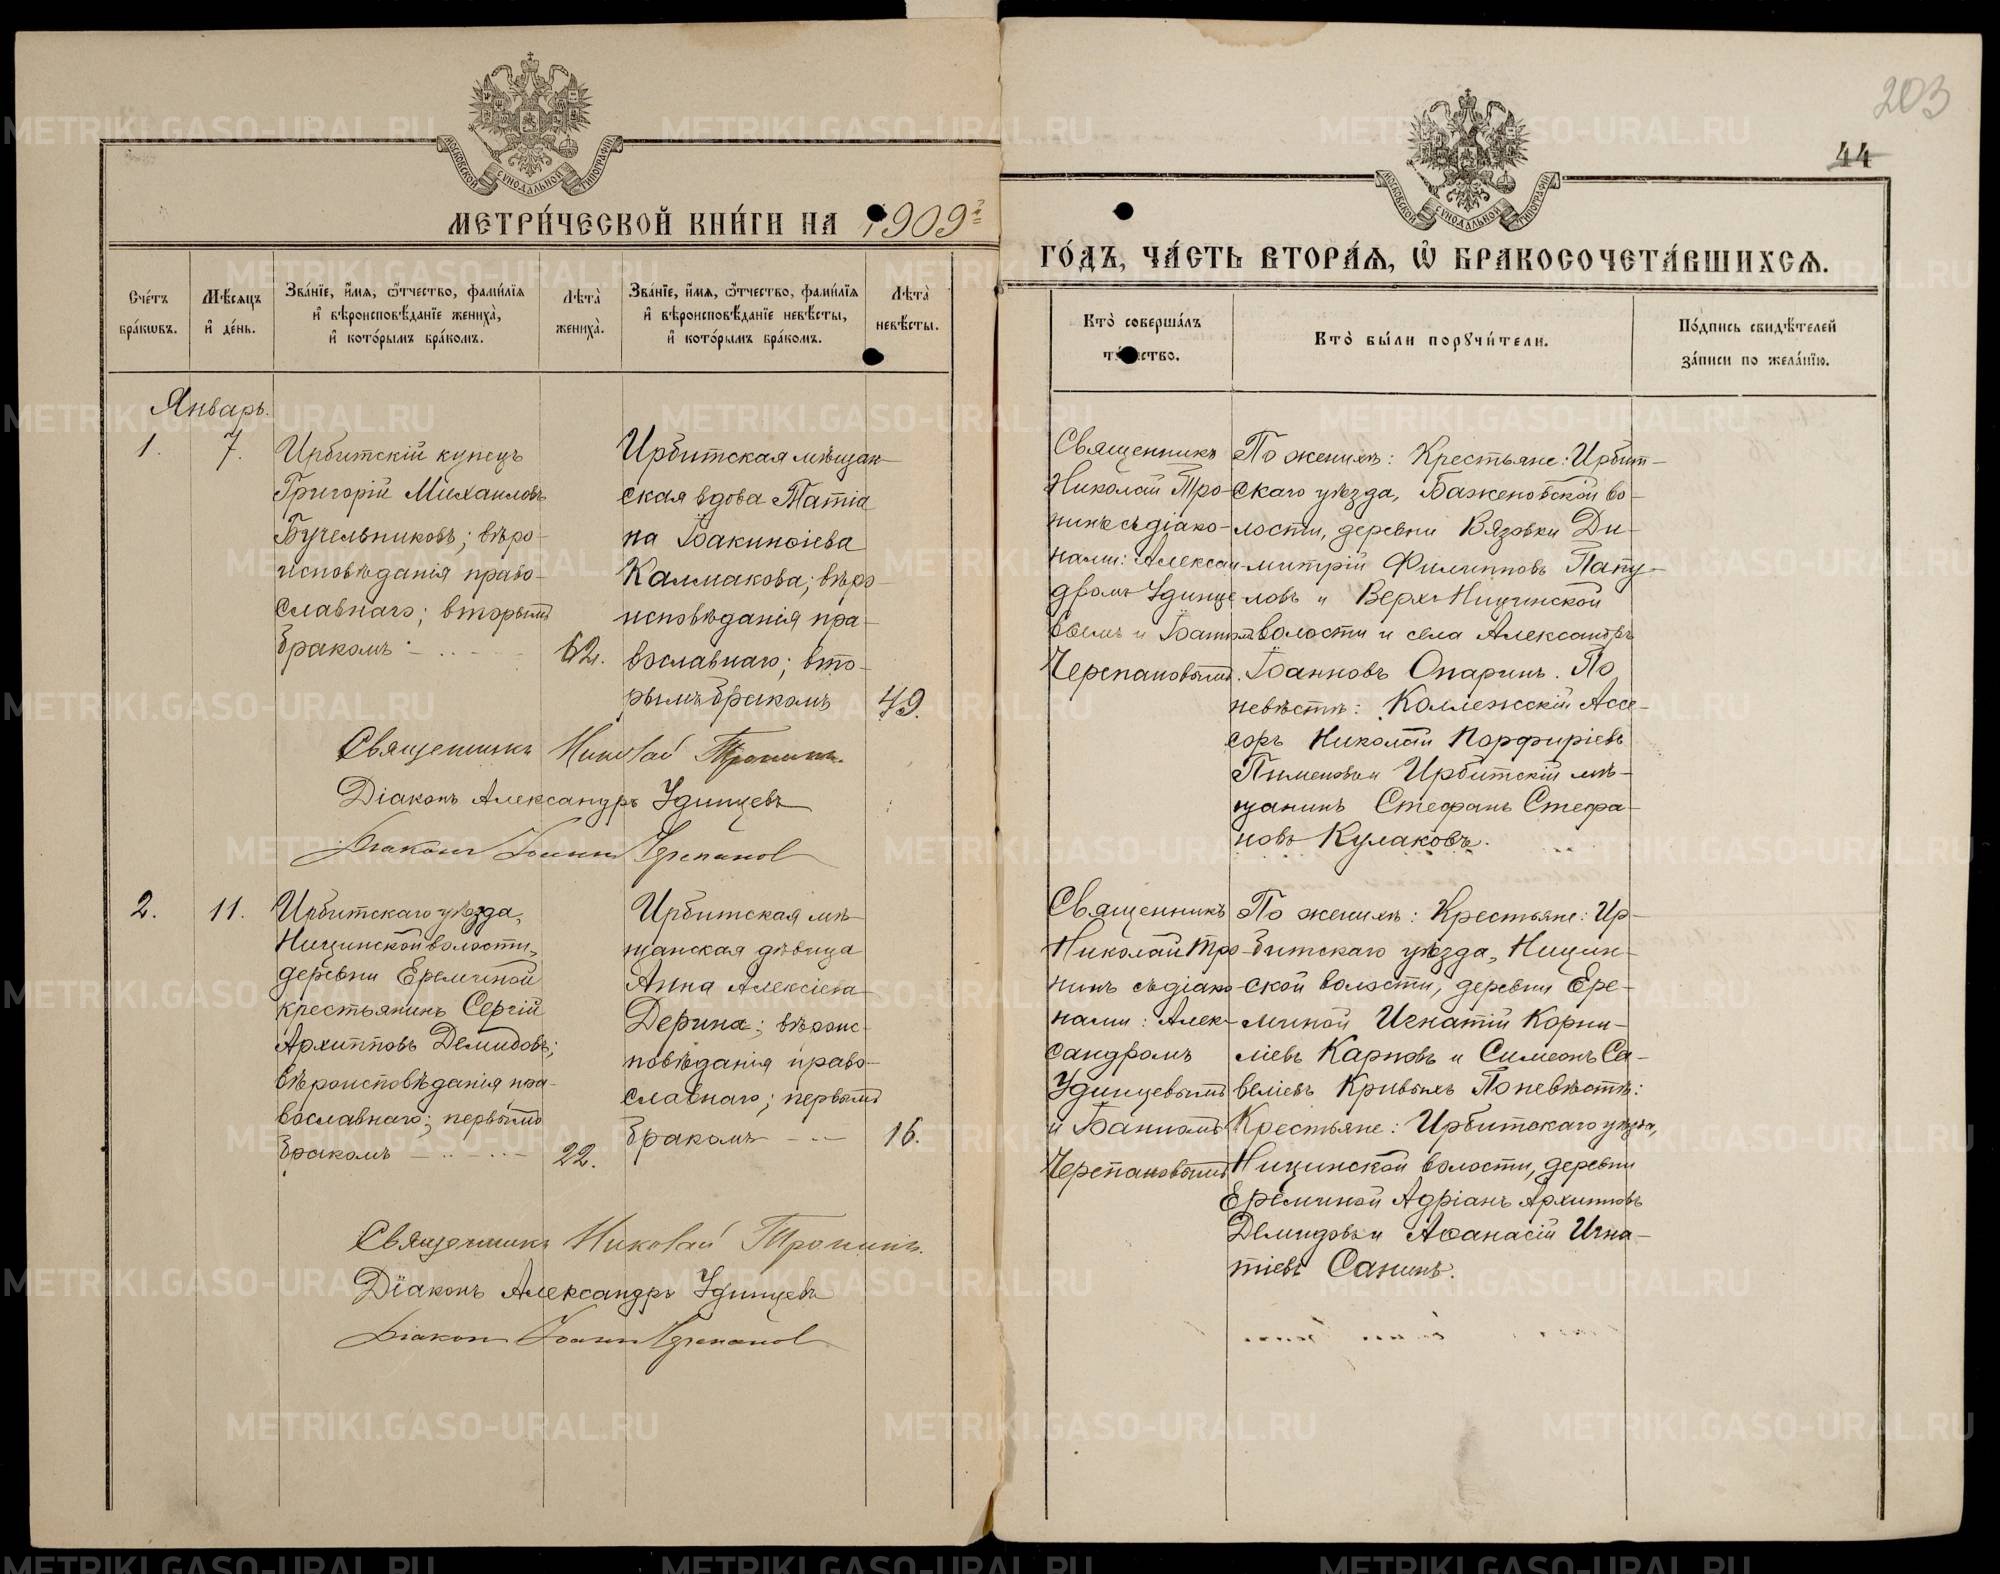 203
44
МОСКОВСКОЙ СѴНОДАЛЬНОЙ ТИПОГРАФІИ
МОСКОВСКОЙ СѴНОДАЛЬНОЙ ТИПОГРАФІИ
МЕТРИ́ЧЕСКОЙ КНИ́ГИ НА 1909 г.
ГО́ДЪ, ЧА́СТЬ ВТОРА́Ѧ, Ѽ БРАКОСОЧЕТА́ВШИХСѦ.
Сче́тъ бра́кѡвъ.
Мѣ́сѧцъ и҆ де́нь.
Зва́нїе, и҆́мѧ, ѻ҆́тчество, фамы́лїѧ и҆ вѣроисповѣ́данїе жениха̀, и҆ кото́рымъ бра́комъ.
Лѣта̀ жениха̀.
Зва́нїе, и҆́мѧ, ѻ҆́тчество, фами́лїѧ и҆ вѣроисповѣ́данїе невѣ́сты, и҆ кото́рымъ бра́комъ.
Лѣта̀ невѣ́сты.
Кто̀ соверша́лъ та́инство.
Кто̀ бы́ли порꙋчи́тели.
По́дпись свидѣ́телей за́писи по жела́нїю.
Январь.
1.
7.
Ирбитскій купецъ
Григорій Михаиловъ
Бучельниковъ; вѣро-
исповѣданія право-
славнаго; вторымъ
бракомъ
62.
Ирбитская мѣщан-
ская вдова Татіа
на Іоакинѳіева
Калмакова; вѣро-
исповѣданія пра-
вославнаго; вто-
рымъ бракомъ
49.
Священникъ
Николай Тро-
нинъ съ діако-
нами: Алексан-
дромъ Удинце
вымъ и Іоанномъ
Черепановымъ.
По женихѣ: Крестьяне: Ирбит-
скаго уѣзда, Баженовской во-
лости, деревни Вязовки Ди-
митрій Филипповъ Папу-
ловъ и Верх-Ницинской
волости и села Александръ
Іоанновъ Опаринъ. По
невѣстѣ: Коллежскій Ассе-
соръ Николай Порфиріевъ
Пименовъ и Ирбитскій мѣ-
щанинъ Стефанъ Стефа-
новъ Кулаковъ.
Священникъ Николай Тронинъ.
Діаконъ Александръ Удинцевъ
Діаконъ Іоаннъ Черепанов
2.
11.
Ирбитскаго уѣзда,
Ницинской волости,
деревни Еремичной
крестьянинъ Сергій
Архипповъ Демидовъ;
вѣроисповѣданія пра-
вославнаго; первымъ
бракомъ
22.
Ирбитская мѣ-
щанская дѣвица
Анна Алексіева
Дерина; вѣроис-
повѣданія право-
славнаго; первымъ
бракомъ
16.
Священникъ
Николай Тро-
нинъ съ діако-
нами: Алек-
сандромъ
Удинцевымъ
и Іоанномъ
Черепановымъ
По женихѣ: Крестьяне: Ир-
битскаго уѣзда, Ницин-
ской волости, деревни Ере-
мичной Игнатій Корни-
ліевъ Карповъ и Симеонъ Са-
веліевъ Кривыхъ По невѣстѣ:
Крестьяне: Ирбитскаго уѣзда,
Ницинской волости, деревни
Еремичной Адріанъ Архипповъ
Демидовъ и Аѳанасій Игна-
тіевъ Санинъ.
Священникъ Николай Тронинъ.
Діаконъ Александръ Удинцевъ
Діаконъ Іоаннъ Черепанов
METRIKI.GASO-URAL.RU